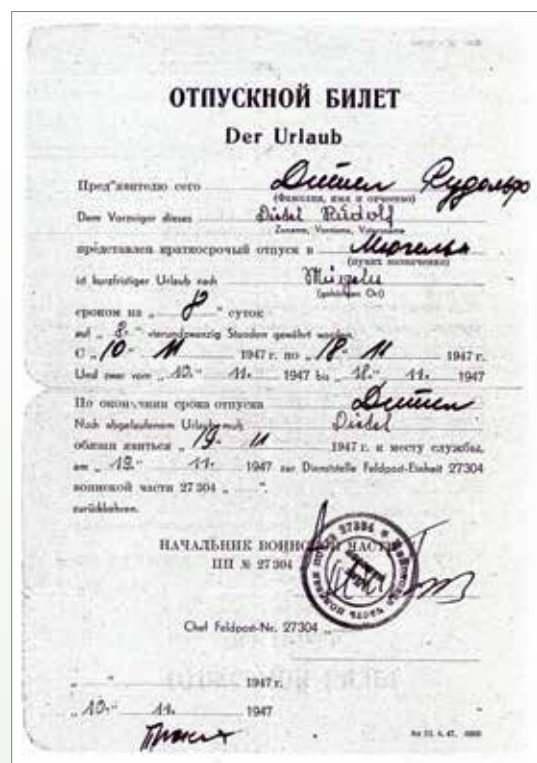 ОТПУСКНОЙ БИЛЕТ
Der Urlaub
Пред"явителю сего Рудольф
(Фамилия, имя и отчество)
Dem Vorzeiger dieses Rudolf
Zuname, Vorname, Vatersname
представлен краткосрочый отпуск в
(пункт назначения)
ist kurzfristiger Urlaub nach
сроком на „ 8 " суток
auf „ 8. " vierundzwanzig Stunden gewährt worden.
С „ 10 " 11 1947 г. по „ 18 " 11 1947 г.
Und zwar vom „ 10. " 11. 1947 bis „ 18. " 11. 1947
По окончании срока отпуска
Nach abgelaufenem Urlaub muß
обязан явиться „ 19. 11 1947 г. к месту службы,
am „ 19. " 11. 1947 zur Dienststelle Feldpost-Einheit 27304
воинской части 27 304 „ ".
zurückkehren.
НАЧАЛЬНИК ВОИНСКОЙ ЧАСТИ
ПП № 27 304
27304
Chef Feldpost-Nr. 27304 „
„ " 1947 г.
„ 10. " 11. 1947